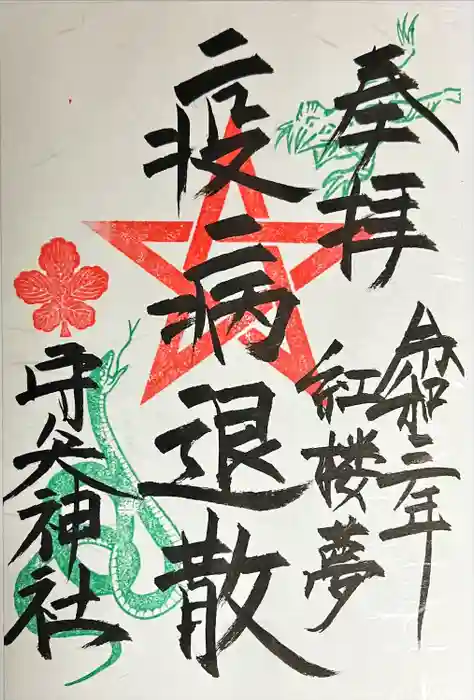 奉拝
令和二年
紅楼夢
疫病退散
守矢神社